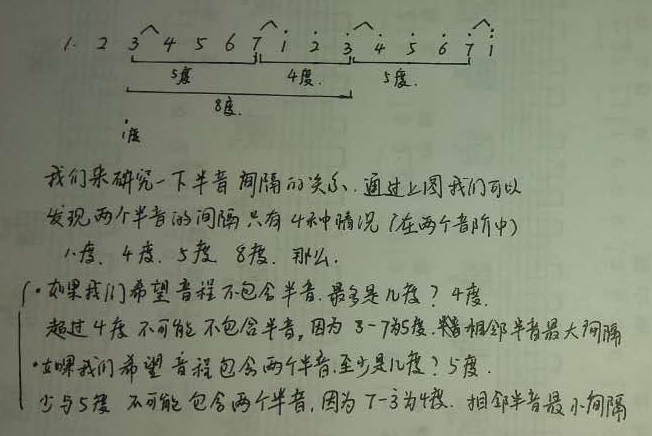 1. 2 3 4 5 6 7 1̇ 2̇ 3̇ 4̇ 5̇ 6̇ 7̇ 1̈
5度 4度. 5度.
8度.
1度
我们来研究一下半音间隔的关系. 通过上图我们可以
发现两个半音的间隔只有4种情况 (在两个音阶中)
1度、4度、5度 8度. 那么.
• 如果我们希望音程不包含半音. 最多是几度? 4度.
超过4度 不可能不包含半音, 因为 3-7为5度. 相邻半音最大间隔
• 如果我们希望音程包含两个半音. 至少是几度? 5度.
少与5度 不可能包含两个半音, 因为 7-3̇为4度. 相邻半音最小间隔